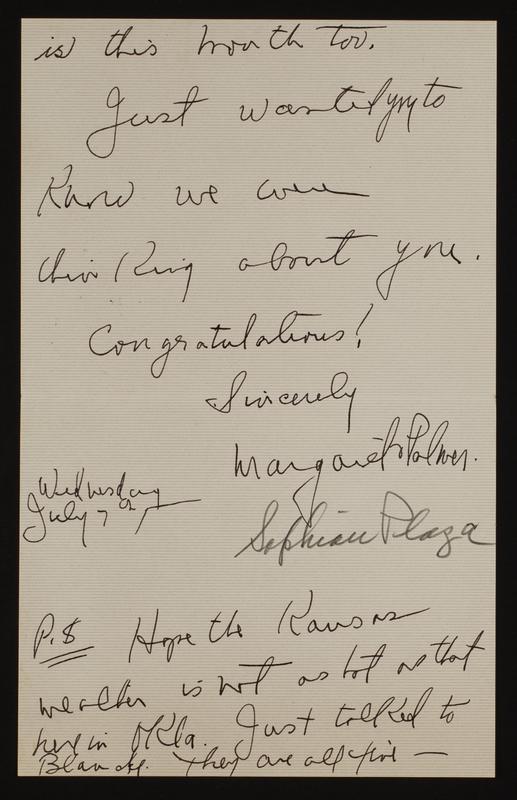 is this month too.
Just wanted you to
Know we were
thinking about you.
Congratulations!
Sincerely
Margaret Palmer.
Wednesday
July 7th
Sophian Plaza
P.S Hope the Kansas
weather is not as hot as that
here in Okla. Just talked to
Blanche. They are all fine —